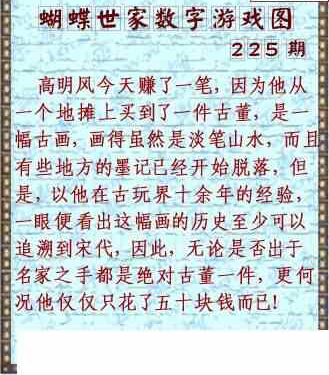 蝴蝶世家数字游戏图
225期
高明风今天赚了一笔，因为他从
一个地摊上买到了一件古董，是一
幅古画，画得虽然是淡笔山水，而且
有些地方的墨记已经开始脱落，但
是，以他在古玩界十余年的经验，
一眼便看出这幅画的历史至少可以
追溯到宋代，因此，无论是否出于
名家之手都是绝对古董一件，更何
况他仅仅只花了五十块钱而已！